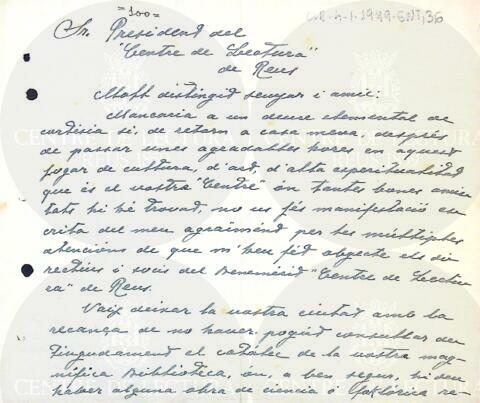 =100=
C.L-4-1-1949-ENT,36
Sr. President del
"Centre de Lectura"
de Reus
Molt distingid senyor i amic:
Mancaria a un deure elemental de
cortesia si, de retorn a casa meva, després
de passar unes agradables hores en aquest
fogar de cultura, d'art, d'alta espiritualitad
que és el vostre "Centre" on tantes bones amis
tats hi hé trovad, no us fés manifestació es
crita del meu agraiment per les múltiples
atencions de que m'heu fét obgecte els di
rectius i socis del Benemèrid "Centre de Lectu
ra" de Reus.
Vaig deixar la vostra ciutat amb la
recança de no haver pogut consultar de
tingudament el catalec de la vostra mag
nífica Biblioteca, ón, a ben segur, hi deu
haber alguna obra de ciència o folklòrica re-
CENTRE DE LECTURA
REUS